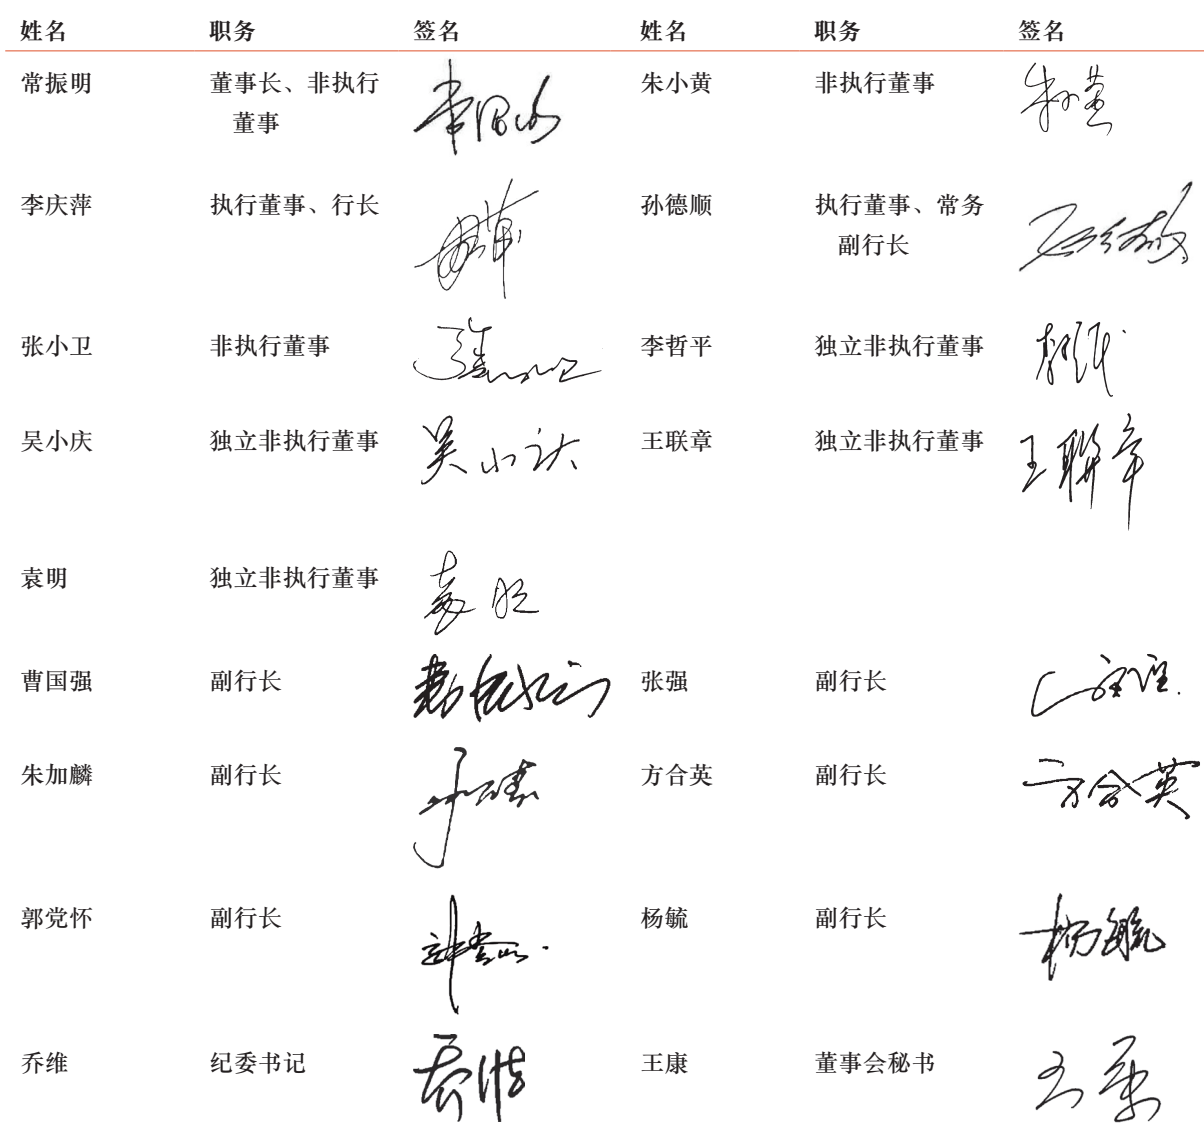 姓名 职务 签名 姓名 职务 签名
常振明 董事长、非执行 朱小黄 非执行董事
董事
李庆萍 执行董事、行长 孙德顺 执行董事、常务
副行长
张小卫 非执行董事 李哲平 独立非执行董事
吴小庆 独立非执行董事 吴小庆 王联章 独立非执行董事 王聯章
袁明 独立非执行董事 袁明
曹国强 副行长 张强 副行长
朱加麟 副行长 方合英 副行长 方合英
郭党怀 副行长 杨毓 副行长 杨毓
乔维 纪委书记 王康 董事会秘书 王康